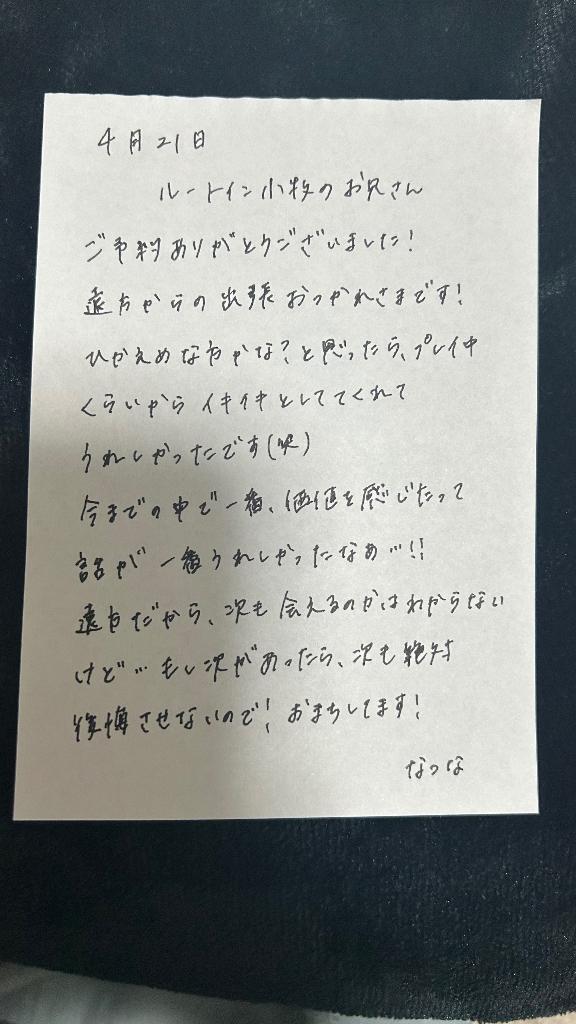 4月21日
ルートイン小牧のお兄さん
ご予約ありがとうございました!
遠方からの出張おつかれさまです!
ひかえめな方かな?と思ったら、プレイ中
くらいからイキイキとしててくれて
うれしかったです(笑)
今までの中で一番、価値を感じたって
話が一番うれしかったなぁ…!!
遠方だから、次も会えるのかはわからない
けど…もし次があったら、次も絶対
後悔させないので!おまちしてます!
なつな